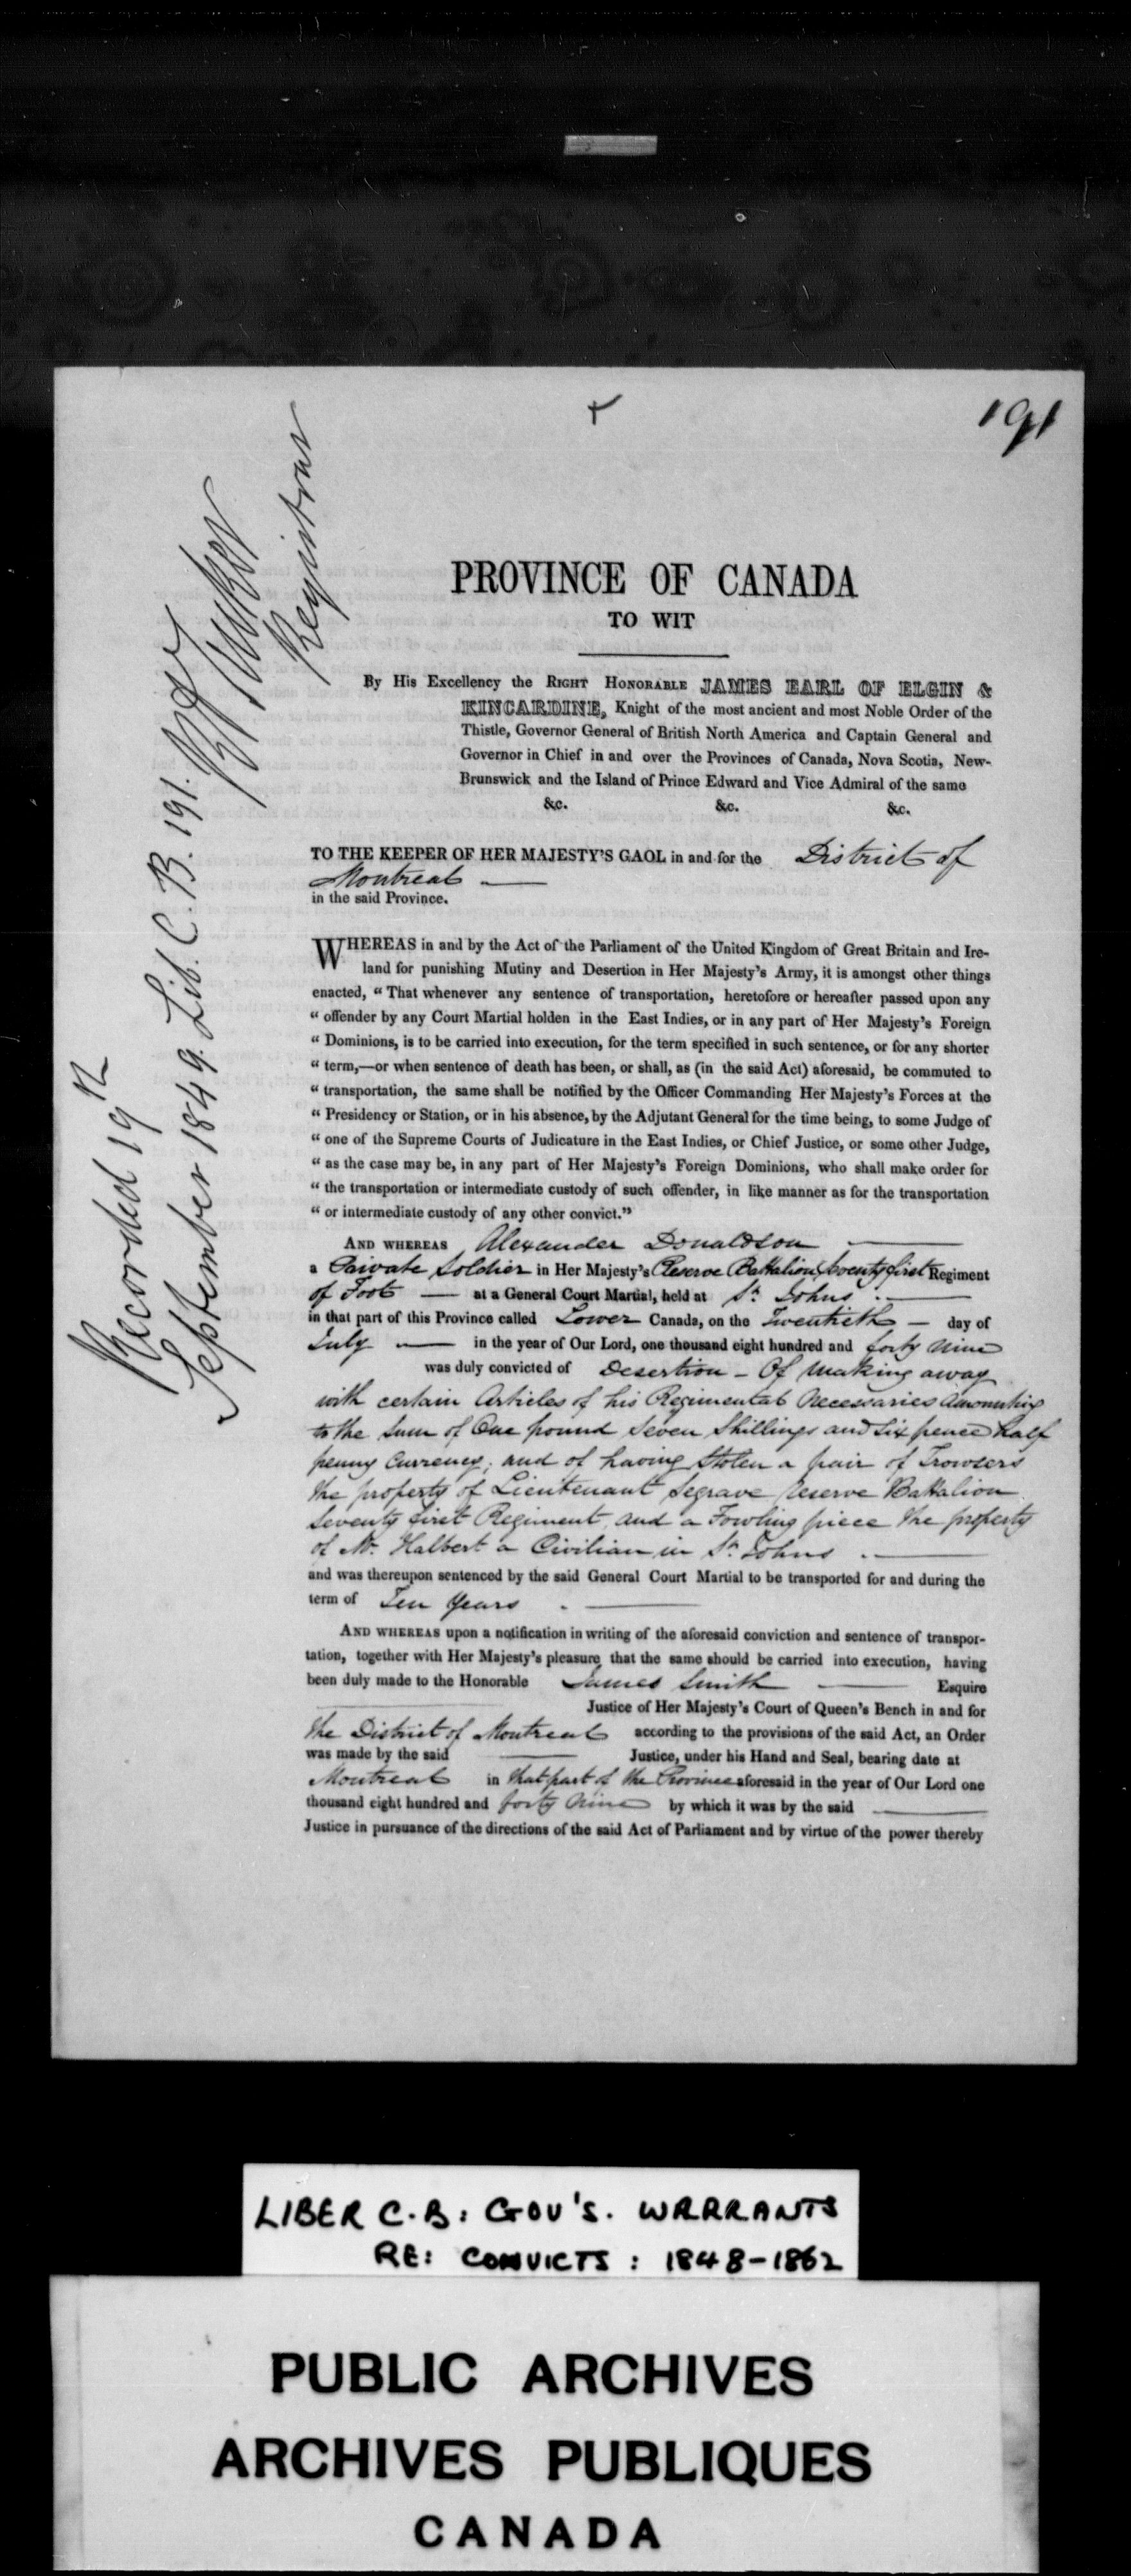 191
Recorded 19th
September 1849. Lib. C. B. 191.
Registrar
PROVINCE OF CANADA
TO WIT
By His Excellency the Right Honorable JAMES EARL OF ELGIN &
KINCARDINE, Knight of the most ancient and most Noble Order of the
Thistle, Governor General of British North America and Captain General and
Governor in Chief in and over the Provinces of Canada, Nova Scotia, New-
Brunswick and the Island of Prince Edward and Vice Admiral of the same
&c. &c. &c.
TO THE KEEPER OF HER MAJESTY'S GAOL in and for the District of
Montreal —
in the said Province.
WHEREAS in and by the Act of the Parliament of the United Kingdom of Great Britain and Ire-
land for punishing Mutiny and Desertion in Her Majesty's Army, it is amongst other things
enacted, "That whenever any sentence of transportation, heretofore or hereafter passed upon any
" offender by any Court Martial holden in the East Indies, or in any part of Her Majesty's Foreign
" Dominions, is to be carried into execution, for the term specified in such sentence, or for any shorter
" term,—or when sentence of death has been, or shall, as (in the said Act) aforesaid, be commuted to
" transportation, the same shall be notified by the Officer Commanding Her Majesty's Forces at the
" Presidency or Station, or in his absence, by the Adjutant General for the time being, to some Judge of
" one of the Supreme Courts of Judicature in the East Indies, or Chief Justice, or some other Judge,
" as the case may be, in any part of Her Majesty's Foreign Dominions, who shall make order for
" the transportation or intermediate custody of such offender, in like manner as for the transportation
" or intermediate custody of any other convict."
AND WHEREAS Alexander Donaldson —
a Private Soldier in Her Majesty's Reserve Battalion Seventy first Regiment
of Foot — at a General Court Martial, held at St. Johns —
in that part of this Province called Lower Canada, on the Twentieth — day of
July — in the year of Our Lord, one thousand eight hundred and forty nine
was duly convicted of Desertion - Of making away
with certain Articles of his Regimental Necessaries amounting
to the Sum of One pound Seven Shillings and Six pence half
penny Currency; and of having Stolen a pair of Trowsers
the property of Lieutenant Segrave Reserve Battalion
Seventy first Regiment, and a Fowling piece the property
of Mr. Halbert a Civilian in St. Johns —
and was thereupon sentenced by the said General Court Martial to be transported for and during the
term of Ten Years —
AND WHEREAS upon a notification in writing of the aforesaid conviction and sentence of transpor-
tation, together with Her Majesty's pleasure that the same should be carried into execution, having
been duly made to the Honorable James Smith — Esquire
Justice of Her Majesty's Court of Queen's Bench in and for
the District of Montreal according to the provisions of the said Act, an Order
was made by the said — Justice, under his Hand and Seal, bearing date at
Montreal in that part of the Province aforesaid in the year of Our Lord one
thousand eight hundred and forty nine by which it was by the said —
Justice in pursuance of the directions of the said Act of Parliament and by virtue of the power thereby
LIBER C.B: GOV'S. WARRANTS
RE: CONVICTS: 1848-1862
PUBLIC ARCHIVES
ARCHIVES PUBLIQUES
CANADA